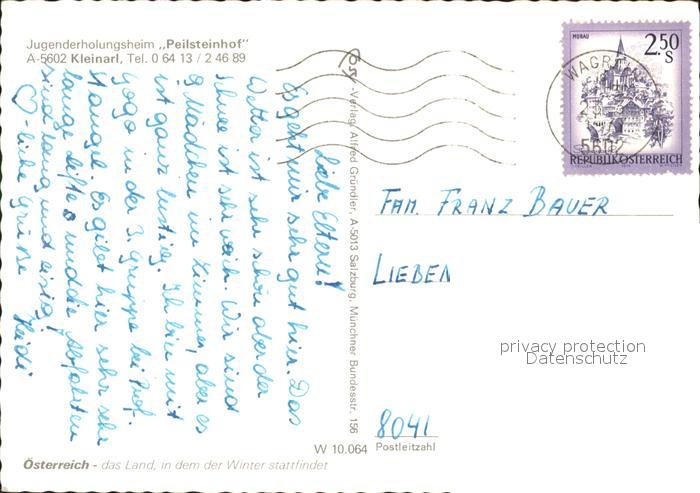 Jugenderholungsheim „Peilsteinhof"
A-5602 Kleinarl, Tel. 0 64 13 / 2 46 89
Liebe Eltern!
Es geht mir sehr gut hier. Das
Wetter ist sehr schön aber der
Schnee ist sehr weich. Wir sind
8 Mädchen im Zimmer, aber es
ist ganz lustig. Ich bin mit
Gogo in der 3. Gruppe bei Prof.
Stangl. Es gibt hier sehr sehr
lange Lifte und die Abfahrten
sind lang und eisig!
♡-liche Grüße Heidi
-Verlag Alfred Gründler, A-5013 Salzburg, Münchner Bundesstr. 156
MURAU
2.50
S
REPUBLIK ÖSTERREICH
WAGR
5602
FAM. FRANZ BAUER
LIEBEN
privacy protection
Datenschutz
8041
Postleitzahl
W 10.064
Österreich - das Land, in dem der Winter stattfindet